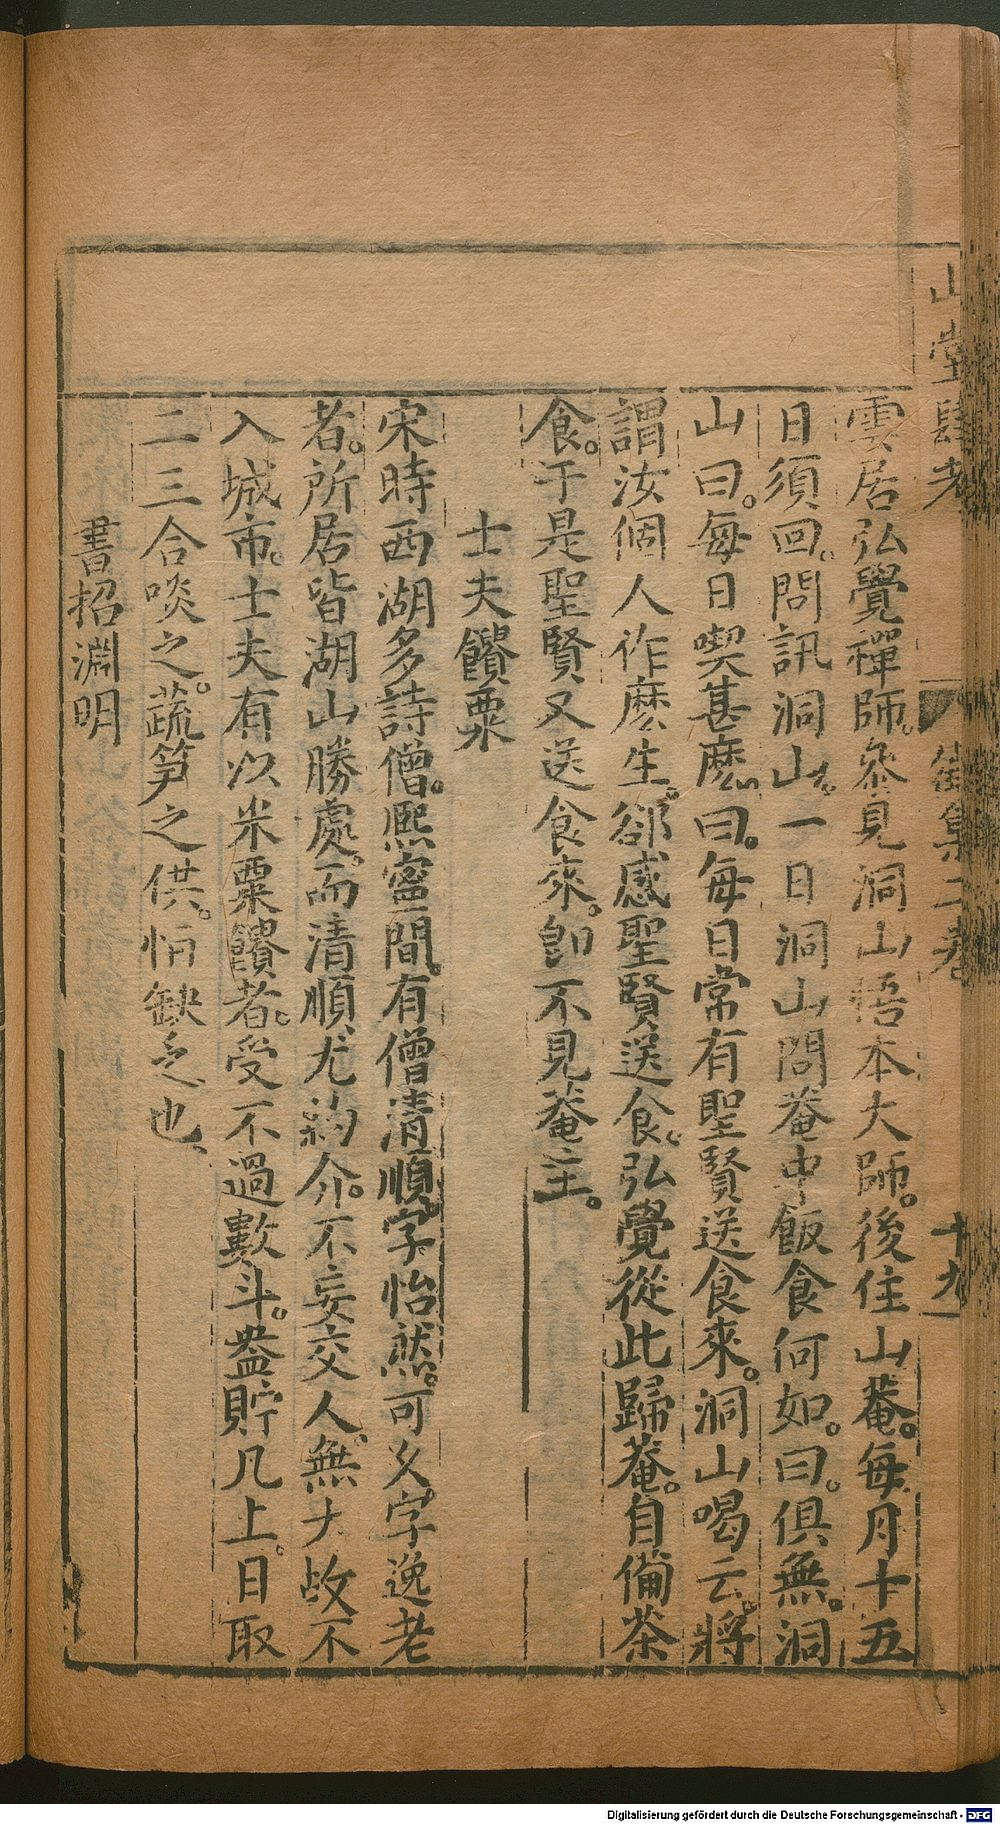 雲居弘覺禪師。參見洞山悟本大師。後住山菴。每月十五
日須回。問訊洞山。一日洞山問菴中飯食何如。曰。俱無。洞
山曰。每日喫甚麽。曰。每日常有聖賢送食來。洞山喝云。將
謂汝個人作麽生。郤感聖賢送食。弘覺從此歸菴。自俻茶
食。于是聖賢又送食來。卽不見菴主。
士夫饋粟
宋時西湖多詩僧。熈寧間。有僧清順。字怡然。可久。字逸老
者。所居皆湖山勝處。而清順尤約介。不妄交人。無大故不
入城市。士夫有以米粟饋者。受不過數斗。盎貯几上。日取
二三合啖之。蔬笋之供。恒缺乏也、
書招淵明
Digitalisierung gefördert durch die Deutsche Forschungsgemeinschaft - DFG